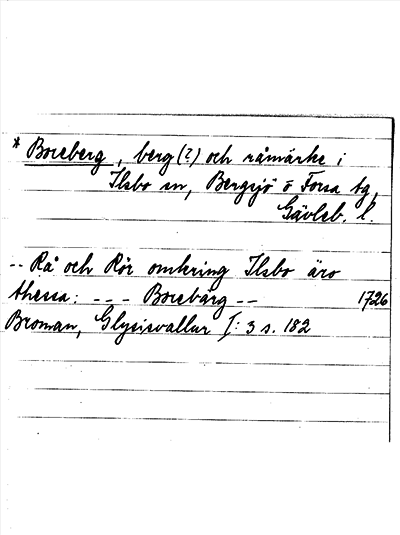 * Boreberg, berg (?) och råmärke i
Ilsbo sn, Bergsjö o Forsa tg,
Gävleb. l.
-- Rå och Rör omkring Ilsbo äro
thessa: - - - Boreberg -- 1726
Broman, Glysisvallur I: 3 s. 182